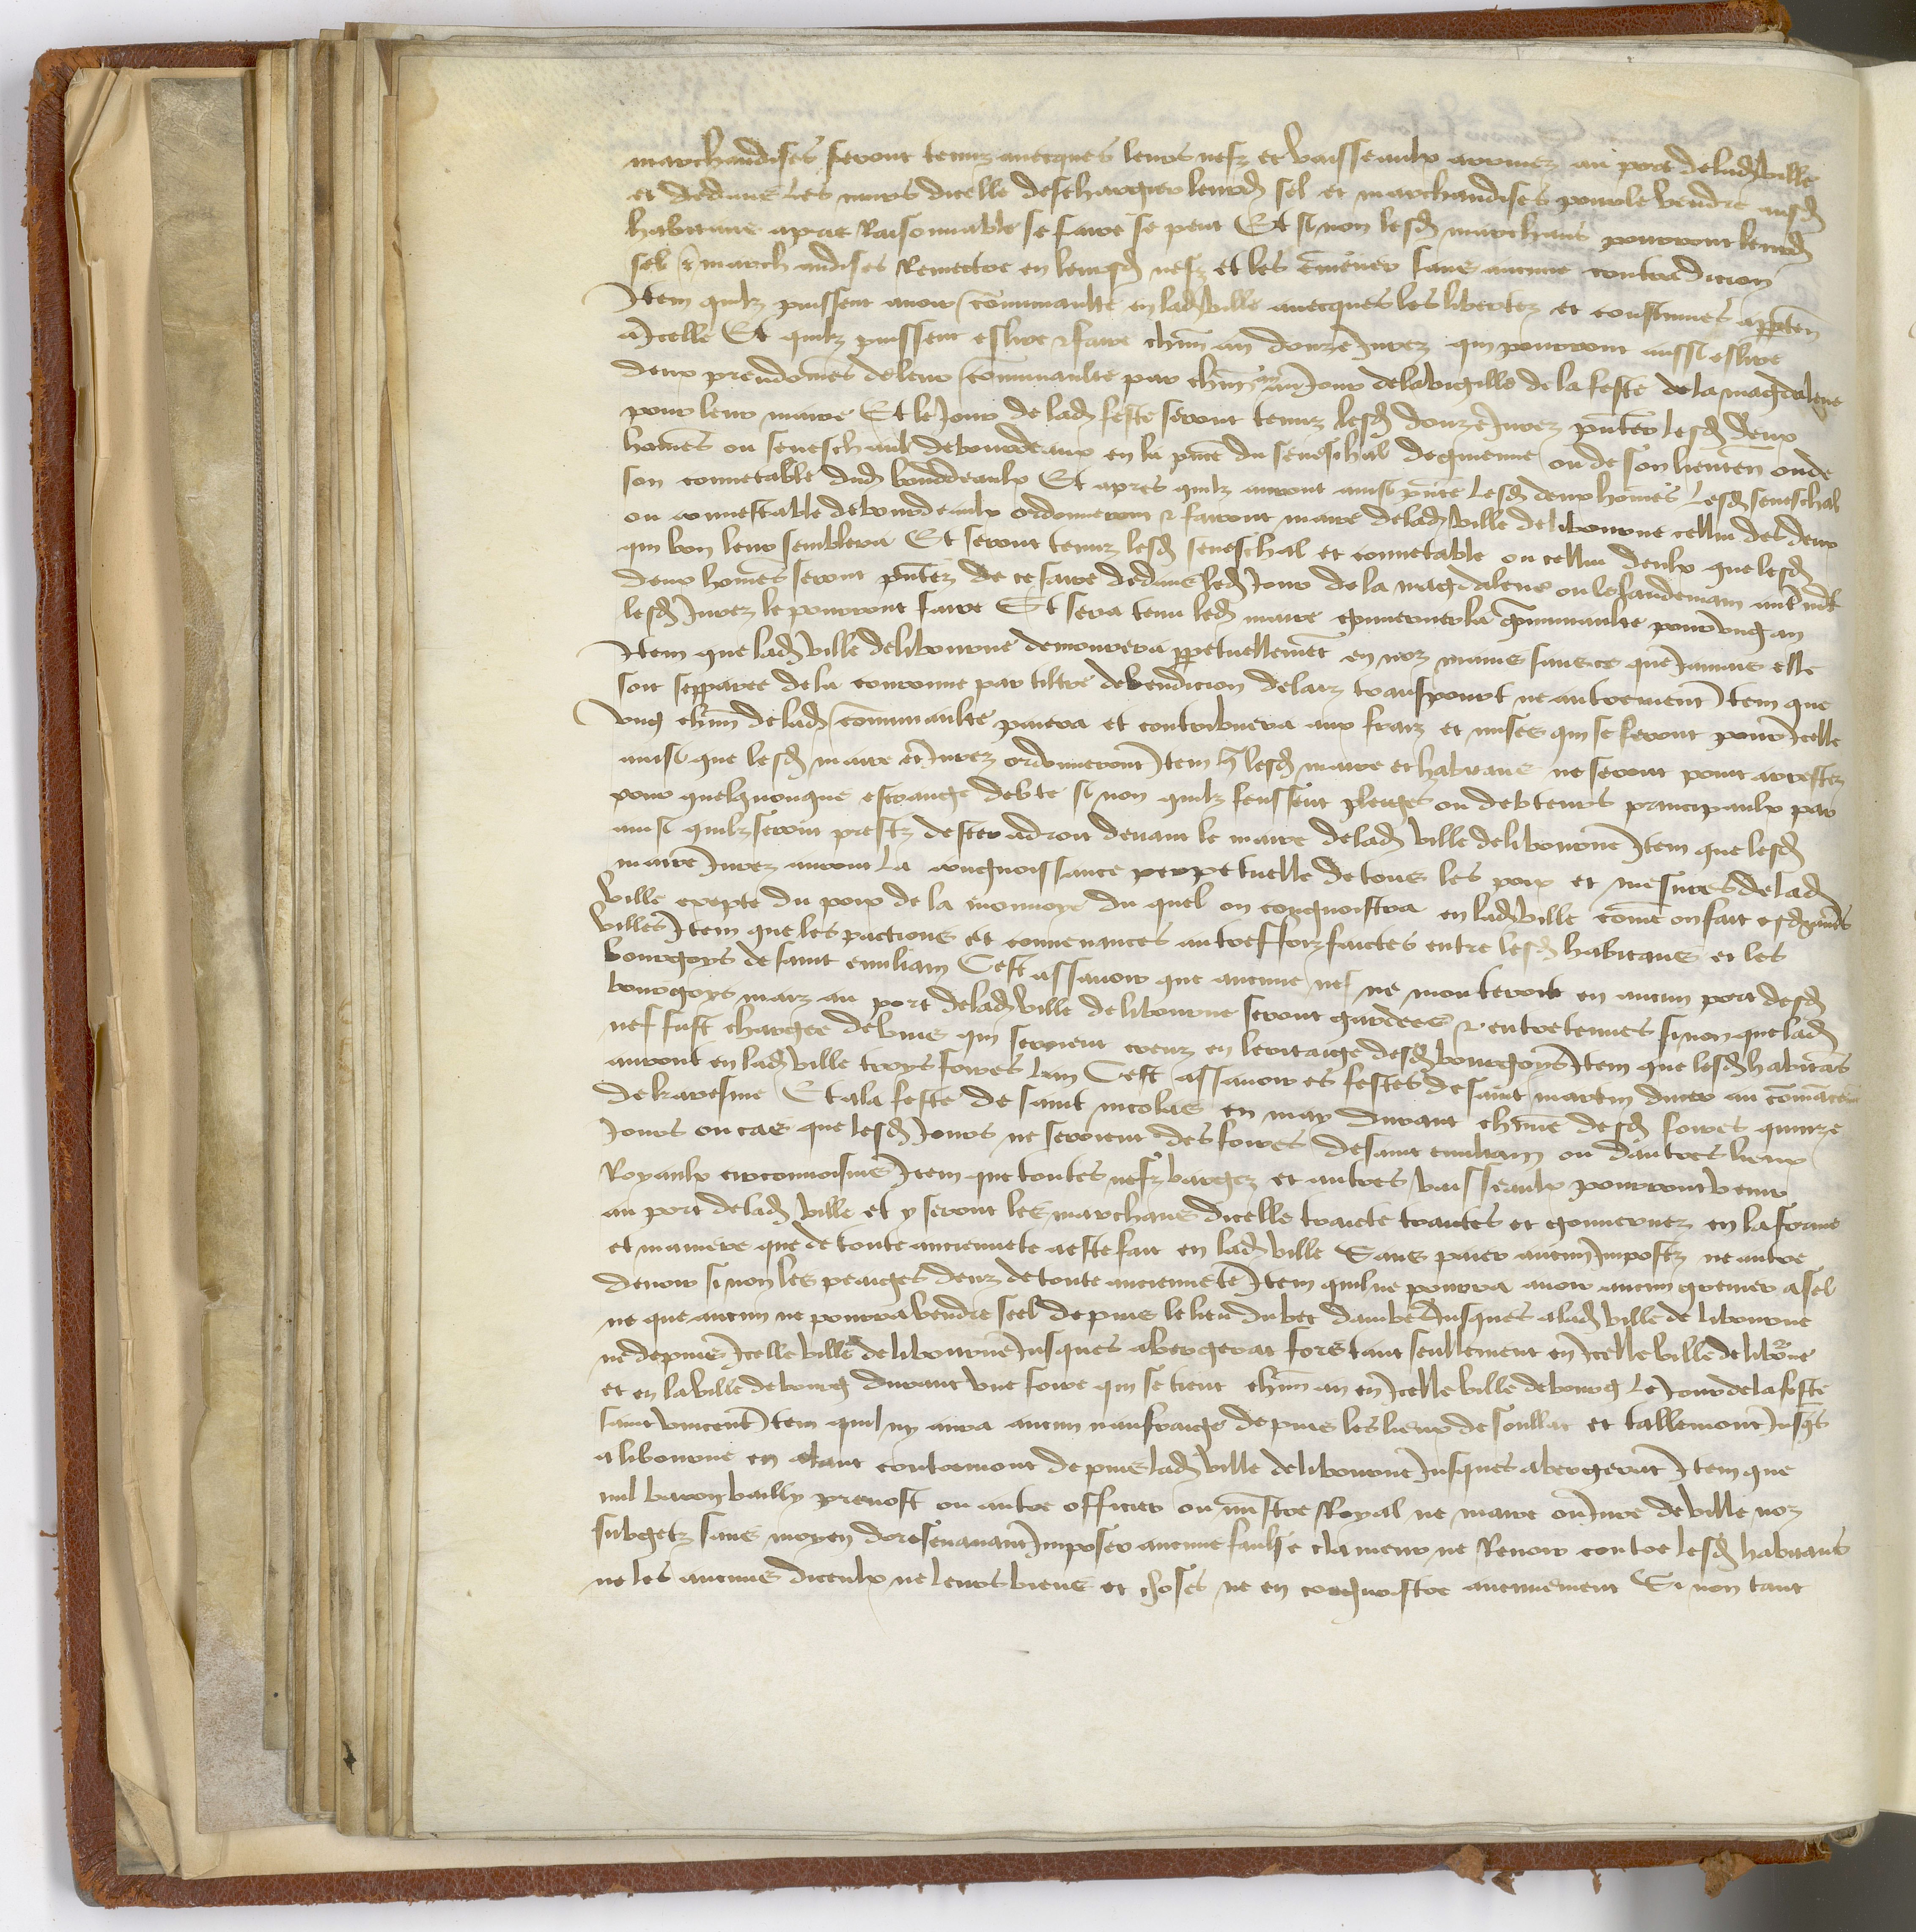 marchandises seront tenuz avecques leurs nefz et vaisseaulx arrivez au port de lad ville
et dedans les murs dicelle deschargier leurd sel et marchandises pour le vendre ausd
habitans a pris Raisonnable se faire se peut Et si non lesd marchans pourront leurd
sel et marchandises Remectre en leursd nefz et les emener sans aucune contradicion
Item quilz puissent avoir communaulte en lad ville avecques les libertez et coustumes apparten
a Icelle Et quilz puissent eslire et faire chun an douze Jurez qui pourront aussi eslire
deux preudomes de leur communaulte par chun an au Jour de la vigille de la feste de la magdalene
pour leur maire Et le Jour de lad feste seront tenuz lesd douze Jurez punter lesd deux
homes ou seneschault de bourdeaux en la punce du seneschal de guienne ou de son lieuten ou de
son connetable dud bourdeaulx Et apres quilz auront ainsi punte lesd deux homes lesd seneschal
ou connestable de bourdeaulx ordonneront et feront maire de lad ville de libourne cellui des deux
qui bon leur semblera Et seront tenuz lesd seneschal et connetable ou cellui deulx que lesd
deux homes seront puntez de ce faire dedans led Jour de la magdalene ou le landemain
lesd Jurez le pourront faire Et sera tenu led maire gouverner la communaulte pour ung an
Item que lad ville de libourne demourera perpetuellement en noz mains sans ce que Jamais elle
soit sepparee de la couronne par tiltre de vendicion de laiz transport ne autrement Item que
ung chun de lad communaulte paiera et contribuera aux fraiz et mises qui se feront pour Icelle
ainsi que lesd maire et Jurez ordonneront Item que lesd maire et habitans ne seront point arrestez
pour quelquonque estrange debte si non quilz feussent pleiges ou debteurs principaulx par
ainsi quilz seront prestz dester a droit devant le maire de lad ville de libourne Item que lesd
maire Jurez auront la congnoissance perpetuelle de tous les poix et mesures de lad
ville excepte du poix de la monnoye du quel on congnoistra en lad ville come on fait esd grans
villes Item que les pactions et convenances autreffoiz faictes entre lesd habitans et les
bourgoys de saint emilian Cest assavoir que aucune nef ne monteroit en aucun port desd
bourgoys maiz au port de lad ville de libourne seront gardees et entretenues si non que lad
nef fust chargee de vins qui seroient creuz en leritaige desd bourgoys Item que lesd habitans
auront en lad ville troys foires lan Cest assavoir es festes de saint martin diver au comancement
de karesme Et a la feste de saint nicolas en may durant chune desd foires quinze
Jours ou cas que lesd Jours ne seroient des foires de saint emilian ou dautres lieux
Royaulx circonvoisins Item que toutes nefz bargez et autres vaisseaulx pourront venir
au port de lad ville et y seront les marchans dicelle traictez et gouvernez en la forme
et maniere que de toute anciennete a este fait en lad ville Sans paier aucun Impostz ne autre
devoir si non les peaiges deuz de toute anciennete Item quil ne pourra avoir aucun grenier a sel
ne que aucun ne pourra vendre seel depuis le lieu du bec dambes Jusques a lad ville de libourne
ne depuis Icelle ville de libourne Jusques a bergerat fors tant seullement en Icelle ville de libourne
et en la ville de bourg durant une foire qui se tient chun an en Icelle ville de bourg le Jour de la feste
saint vincent Item quil ny aura aucun naufraige depuis les lieux de soullac et tallemont Jusqs
a libourne en alant contremont depuis lad ville de libourne Jusques a bergerat Item que
nul baron bailly prevost ou autre officier ou ministre Royal ne maire ou Jure de ville noz
subgetz sans moyen doresenavant Imposer aucune faulse clameur ne Renoir contre lesd habitans
ne les aucuns diceulx ne leurs biens et choses ne en congnoistre aucunement Si non tant